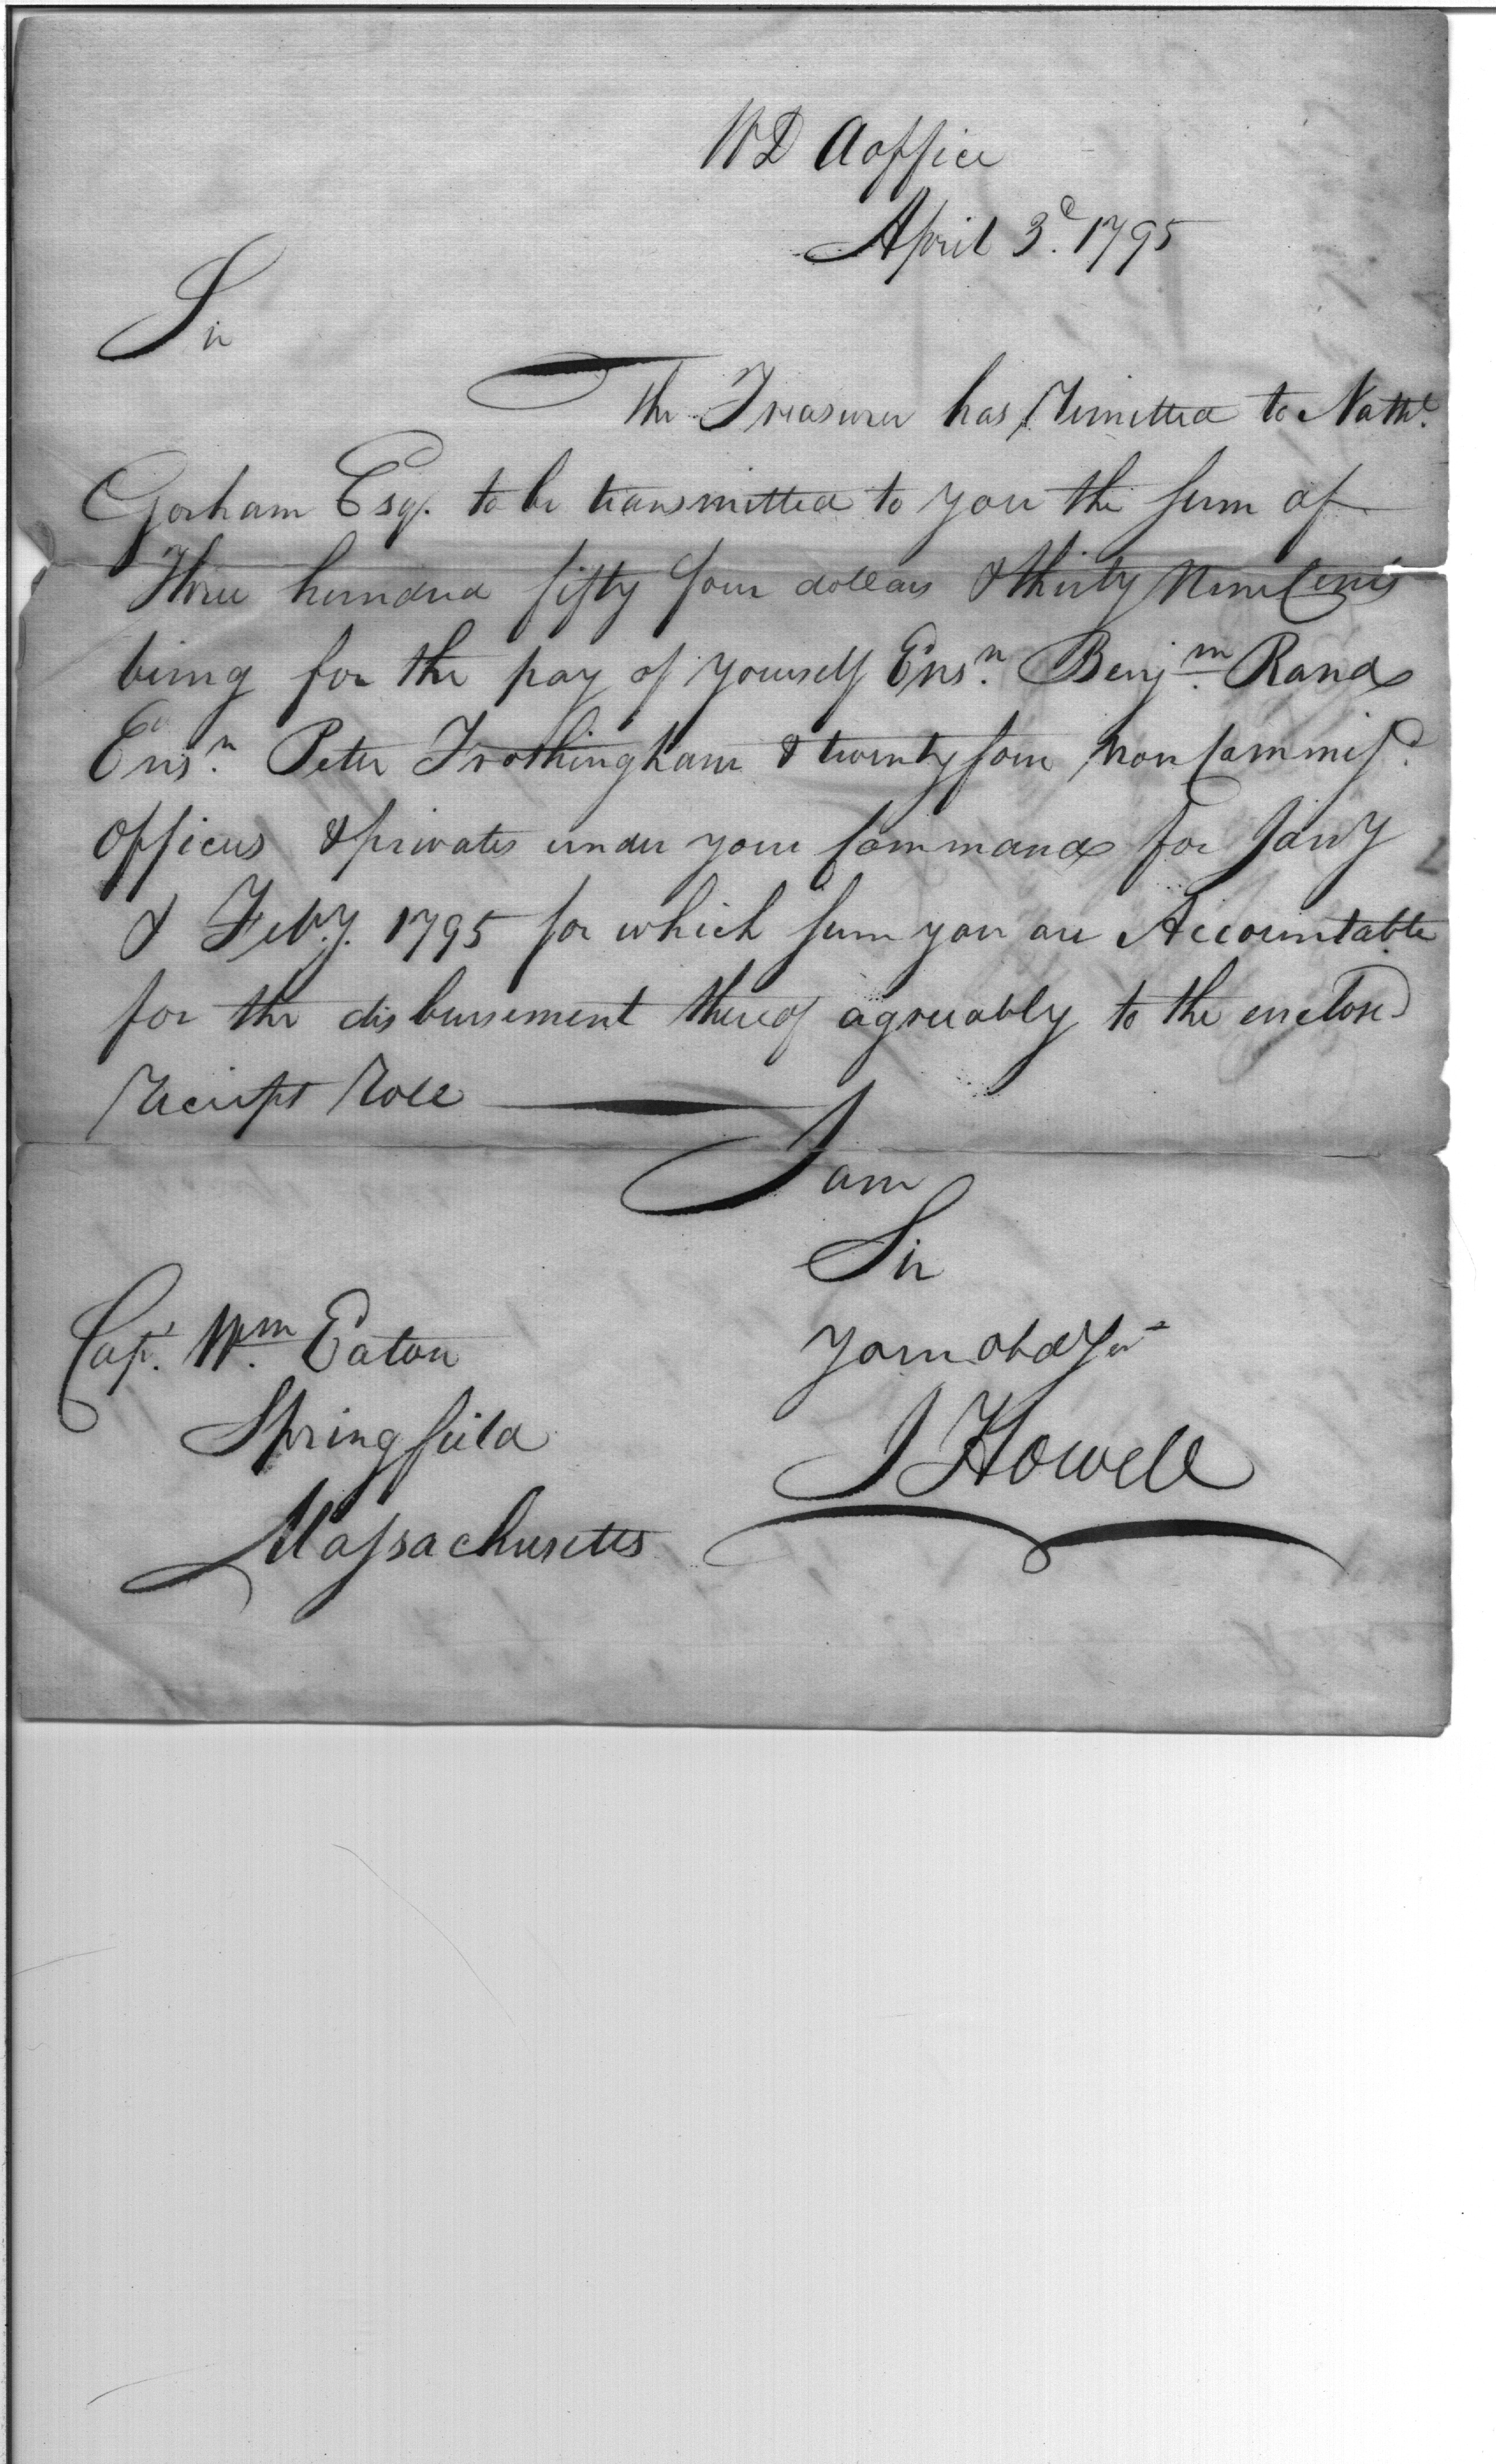 WD Aoffice
April 3d. 1795
Sir
The Treasurer has Remitted to Nathl.
Gorham Esqr. to be transmitted to you the sum of
Three hundred fifty four dollars & thirty Nine Cents
being for the pay of yourself Ensn. Benjm. Rand
Ensn. Peter Frothingham & twenty four non Commisd.
officers & privates under your Command for Jany
& Feby. 1795 for which sum you are Accountable
for the disbursement thereof agreeably to the enclosed
Receipt Roll
I am
Sir
Your obd Sert
J Howell
Capt. Wm. Eaton
Springfield
Massachusetts